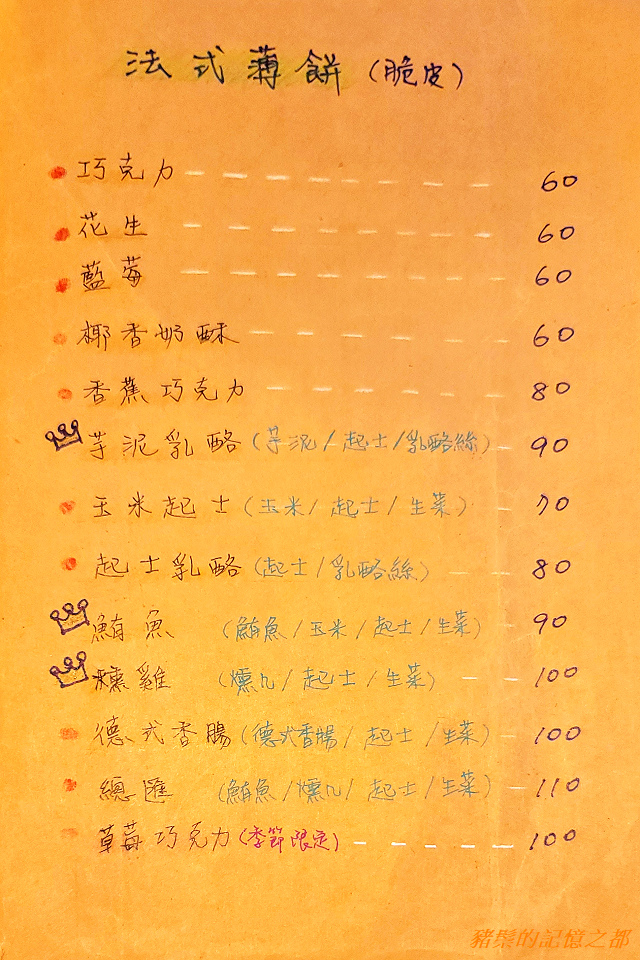 法式薄餅(脆皮)
巧克力 60
花生 60
藍莓 60
椰香奶酥 60
香蕉巧克力 80
芋泥乳酪(芋泥/起士/乳酪絲) 90
玉米起士(玉米/起士/生菜) 70
起士乳酪(起士/乳酪絲) 80
鮪魚 (鮪魚/玉米/起士/生菜) 90
燻雞 (燻几/起士/生菜) 100
德式香腸(德式香腸/起士/生菜) 100
總匯 (鮪魚/燻几/起士/生菜) 110
草莓巧克力(季節限定) 100
豬鬃的記憶之都